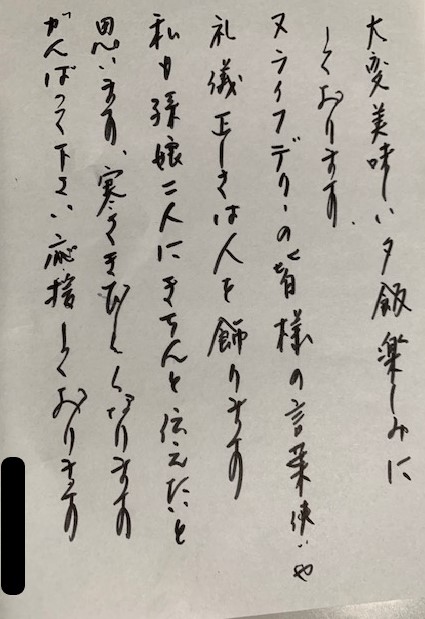 大変美味しい夕飯楽しみに
しております、
又ライフデリーの皆様の言葉使いや
礼儀正しさは人を飾ります
私も孫娘二人にきちんと伝えたいと
思います、寒さきびしくなります
がんばって下さい応援しております